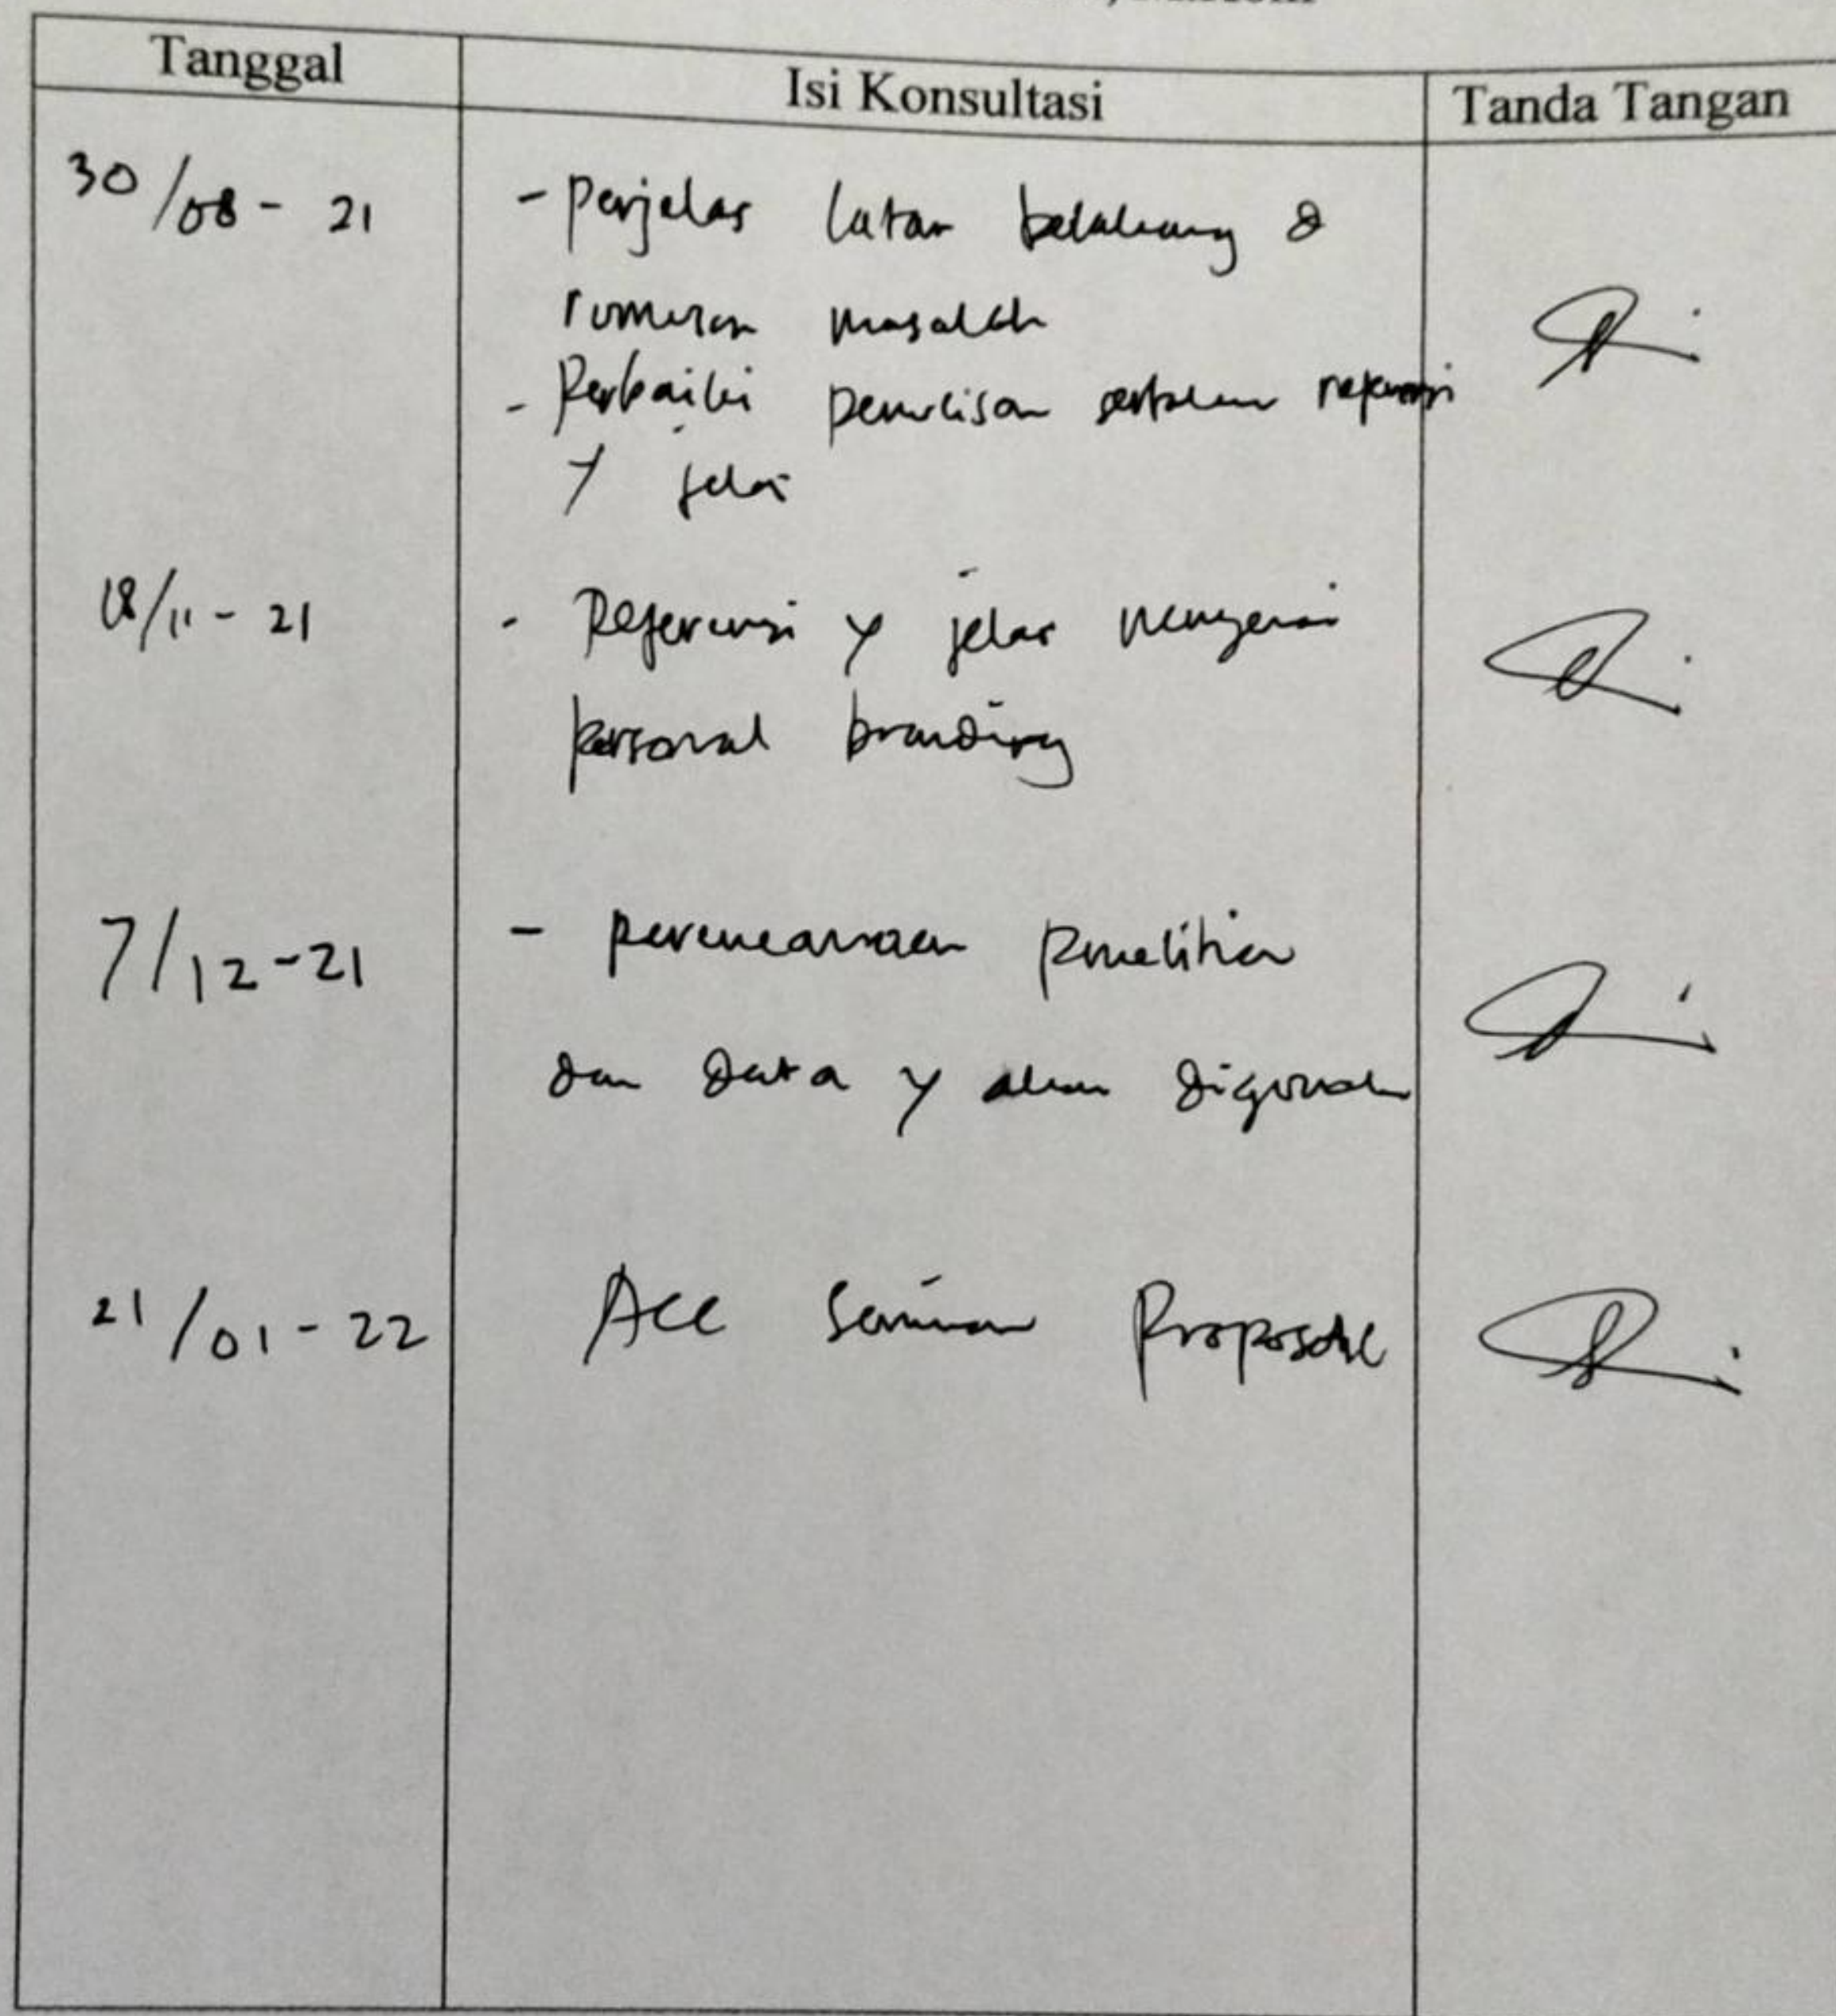 Tanggal Isi Konsultasi Tanda Tangan
30/08 - 21 - Perjelas latar belakang &
rumusan masalah
- Perbaiki penulisan sertakan referensi
y jelas
18/11 - 21 - Referensi y jelas mengenai
personal branding
7/12 - 21 - perencanaan penelitian
dan data y akan digunakan
21/01 - 22 Acc Seminar Proposal